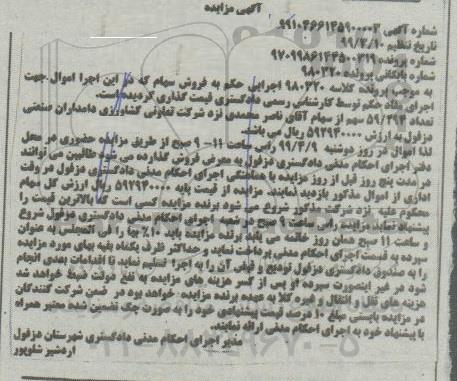 آگهی مزایده
شماره آگهی ۹۹۱۰۴۶۶۱۴۵۹۰۰۰۰۳
تاریخ تنظیم ۹۹/۳/۱۰
شماره پرونده ۹۷۰۹۹۸۶۱۴۴۵۰۰۳۱۹
شماره بایگانی پرونده ۹۸۰۳۲۰
به موجب پرونده کلاسه ۹۸۰۶۲۰ اجرایی حکم به فروش سهام که در این اجرا اموال جهت
اجرای مفاد حکم توسط کارشناس رسمی دادگستری قیمت گذاری گردیده است.
تعداد ۵۹/۳۹۴ سهم از سهام آقای ناصر سعیدی نزد شرکت تعاونی کشاورزی دامداران صنعتی
دزفول به ارزش ۵۹۳۹۴۰۰۰۰ ریال می باشد.
لذا اموال در روز دوشنبه ۹۹/۴/۹ راس ساعت ۱۱- ۹ صبح از طریق مزایده حضوری در محل
دفتر اجرای احکام مدنی دادگستری دزفول به معرض فروش گذارده می شود طالبین می توانند
در مدت پنج روز قبل از روز مزایده با هماهنگی اجرای احکام مدنی دادگستری دزفول در وقت
اداری از اموال مذکور بازدید نمایند. مزایده از قیمت پایه ۵۹۳۹۴۰۰۰۰ ریال ارزش کل سهام
محکوم علیه نزد شرکت مذکور شروع می شود برنده مزایده کسی است که بالاترین قیمت را
پیشنهاد نماید مزایده راس ساعت ۹ صبح در شعبه اجرای احکام مدنی دادگستری دزفول شروع
و ساعت ۱۱ صبح همان روز خاتمه می یابد برنده مزایده باید ۱۰٪ بها را فی المجلس به عنوان
سپرده به قسمت اجرای احکام مدنی پرداخت نماید و حداکثر ظرف یکماه بقیه بهای مورد مزایده
را به صندوق دادگستری دزفول تودیع و قبض آن را به اجرا تسلیم نماید تا اقدامات بعدی انجام
شود در غیر اینصورت سپرده او پس از کسر هزینه های مزایده به نفع دولت ضبط خواهد شد
هزینه های نقل و انتقال و غیره کلا به عهده برنده مزایده خواهد بود در ضمن شرکت کنندگان
در مزایده بایستی مبلغ ۱۰ درصد قیمت پیشنهادی خود را به صورت چک تضمین شده معتبر همراه
با پیشنهاد خود به اجرای احکام مدنی ارائه نمایند.
مدیر اجرای احکام مدنی دادگستری شهرستان دزفول
اردشیر شلوپور